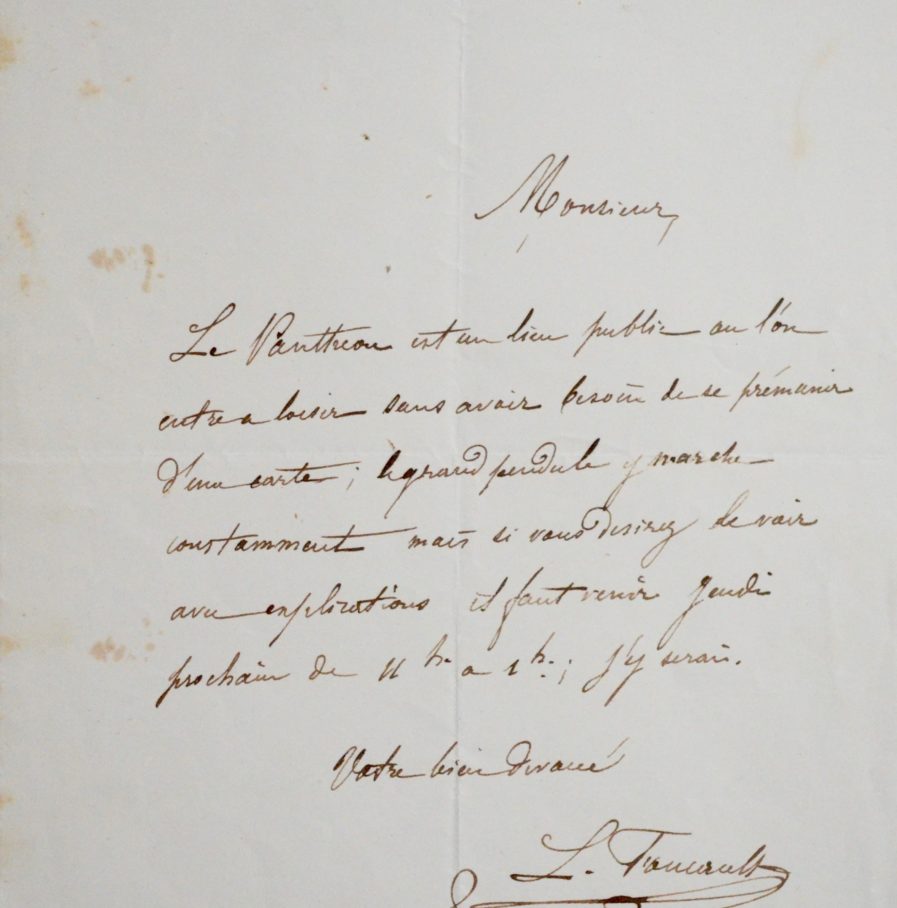 Monsieur,
Le Panthéon est un lieu public ou l'on
entre a loisir sans avoir besoin de se prémunir
d'une carte; le grand pendule y marche
constamment mais si vous desirez le voir
avec explications il faut venir Jeudi
prochain de 11 h. a 1 h.; j'y serai.
Votre bien devoué
L. Foucault